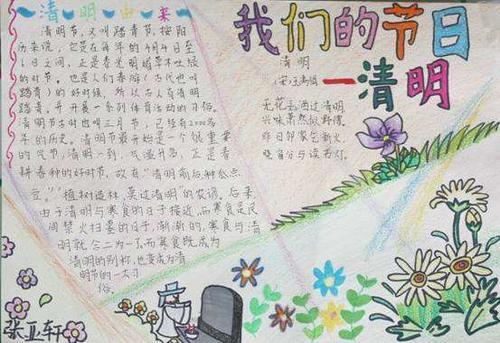 清明由来
清明节,又叫踏青节,按阳
历来说,它是在每年的4月4日至
6日之间,正是春光明媚草木吐绿
的时节。也是人们春游(古代也叫
踏青)的好时候,所以古人有清明
踏青,并开展一系列体育活动的习俗。
清明节古时也叫三月节,已经有2000多
年的历史。清明节最开始是一个很重要
的节气,清明一到,气温升高,正是春
耕春种的好时节,故有“清明前后,种瓜点
豆”。“植树造林,莫过清明”的农谚。后来,
由于清明与寒食的日子接近,而寒食是民
间禁火扫墓的日子,渐渐的,寒食与清
明就合二为一了,而寒食既成为
清明的别称,也变成为清
明节的一大习
俗。
我们的节日
一清明
清明
(宋)王禹偁
无花无酒过清明
兴味萧然似野僧。
昨日邻家乞新火,
晓窗分与读书灯。
张亚轩